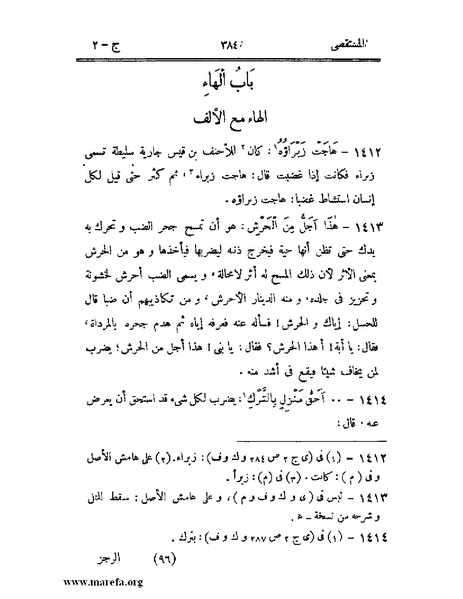 المستقصى ٣٨٤ ج – ٢
بَابُ الْهَاءِ
الهاء مع الألف
١٤١٢ – هَاجَتْ زَبْرَاؤُهُ١: كان٢ للأحنف بن قيس جارية سليطة تسمى
زبراء فكانت إذا غضبت قال: هاجت زبراء٣، ثم كثر حتى قيل لكل
إنسان استشاط غضبا: هاجت زبراؤه.
١٤١٣ – هٰذَا أَجَلُّ مِنَ الْحَرْشِ: هو أن تمسح جحر الضب و تحرك به
يدك حتى تظن أنها حية فيخرج ذنبه ليضربها فيأخذها و هو من الحرش
بمعنى الاثر لان ذلك المسح له أثر لا محالة، و يسمى الضب أحرش لخشونة
و تحزيز فى جلده، و منه الدينار الاحرش، و من تكاذيبهم أن ضبا قال
للحسل: إياك و الحرش! فسأله عنه فعرفه إياه ثم هدم جحره بالمرداة،
فقال: يا أبة! أ هذا الحرش؟ فقال: يا بنى! هذا أجل من الحرش؛ يضرب
لمن يخاف شيئا فيقع فى أشد منه.
١٤١٤ – ٠٠ اَحَقُّ مَنْزِلٍ بِالتَّرْكِ١: يضرب لكل شىء قد استحق أن يعرض
عنه. قال:
١٤١٢ – (١) فى (ى ج ٢ ص ٢٨٤ و ك و ف): زبراء. (٢) على هامش الأصل
و فى (م): كانت. (٣) فى (م): زبرأ.
١٤١٣ – ليس فى (ى و ك و ف و م)، و على هامش الأصل: سقط المثل
و شرحه من نسخة – ه.
١٤١٤ – (١) فى (ى ج ٢ ص ٢٨٧ و ك و ف): بترك.
(٩٦) الرجز
www.marefa.org